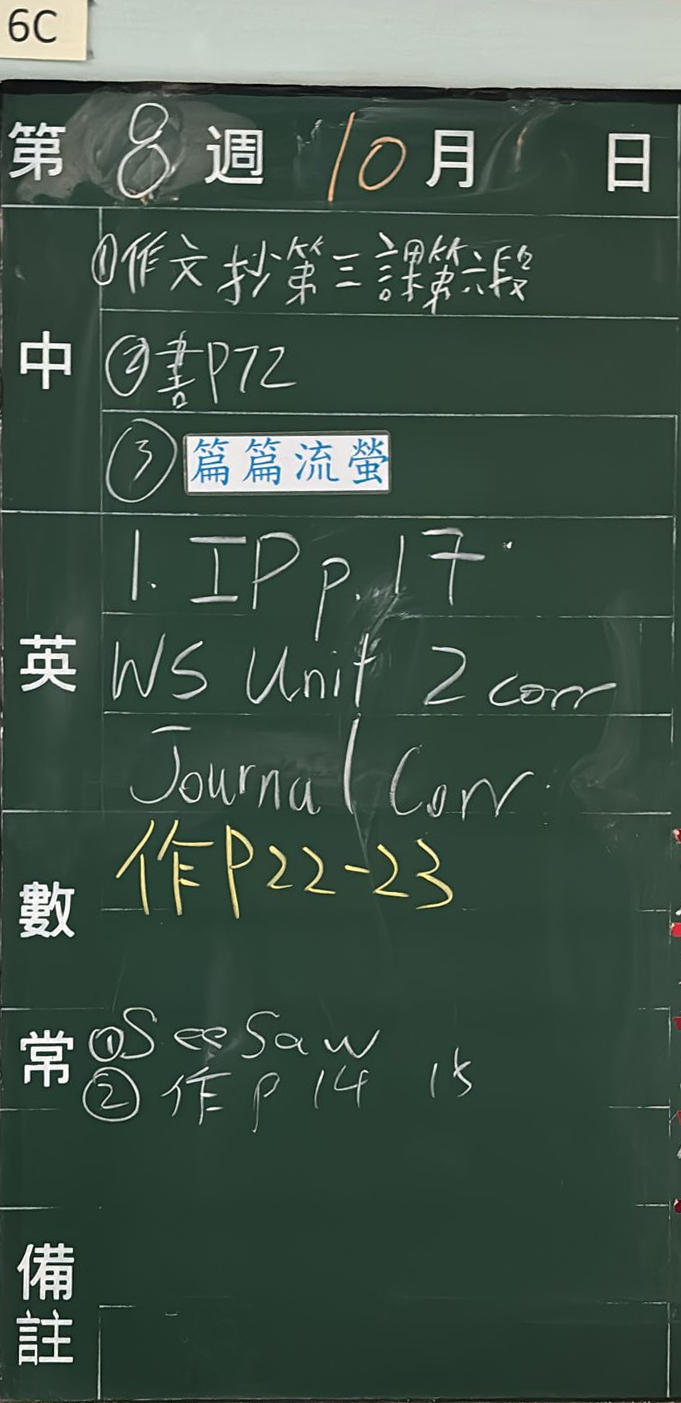 6C
第 8 週 10 月 日
中
①作文抄第三課第六段
②書P72
③ 篇篇流螢
英
1. IP p.17
WS Unit 2 corr
Journal Corr.
數
作P22-23
常
①SeeSaw
②作P 14 15
備註